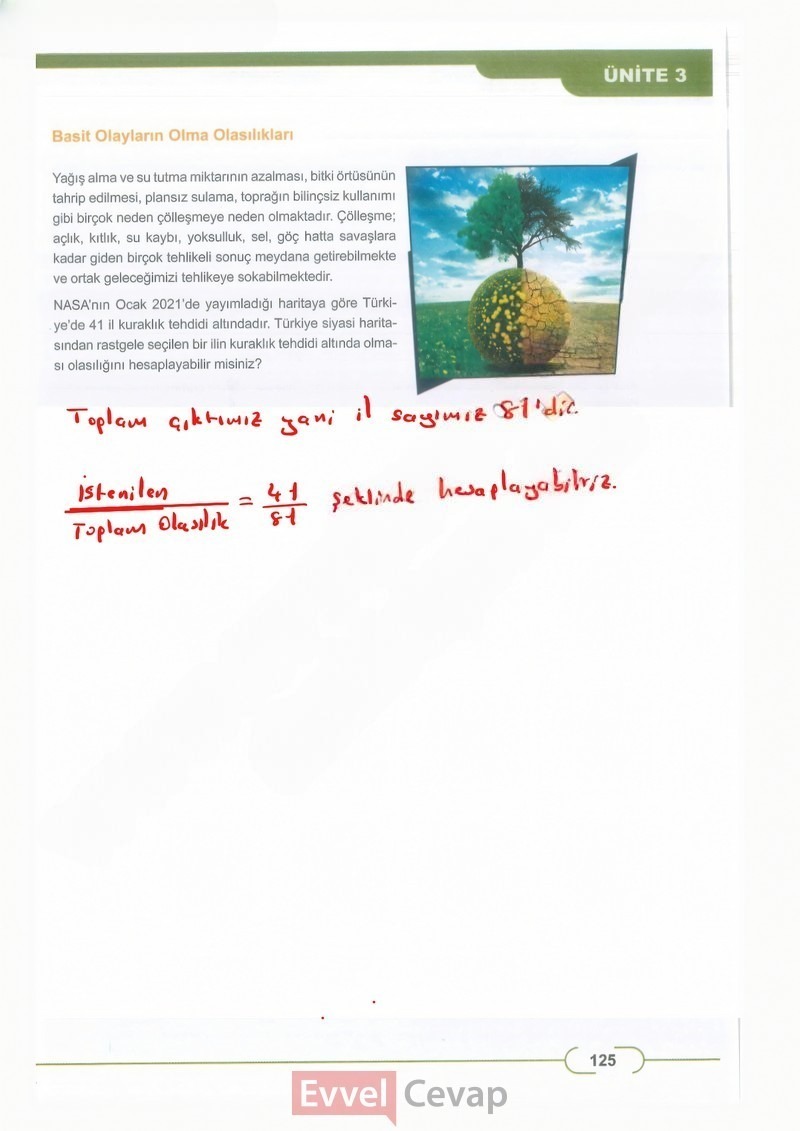 ÜNİTE 3
Basit Olayların Olma Olasılıkları
Yağış alma ve su tutma miktarının azalması, bitki örtüsünün
tahrip edilmesi, plansız sulama, toprağın bilinçsiz kullanımı
gibi birçok neden çölleşmeye neden olmaktadır. Çölleşme;
açlık, kıtlık, su kaybı, yoksulluk, sel, göç hatta savaşlara
kadar giden birçok tehlikeli sonuç meydana getirebilmekte
ve ortak geleceğimizi tehlikeye sokabilmektedir.
NASA'nın Ocak 2021'de yayımladığı haritaya göre Türki-
ye'de 41 il kuraklık tehdidi altındadır. Türkiye siyasi harita-
sından rastgele seçilen bir ilin kuraklık tehdidi altında olma-
sı olasılığını hesaplayabilir misiniz?
Toplam çıktımız yani il sayımız 81'dir.
İstenilen
Toplam Olasılık
= 41
81
şeklinde hesaplayabiliriz.
125
Evvel Cevap